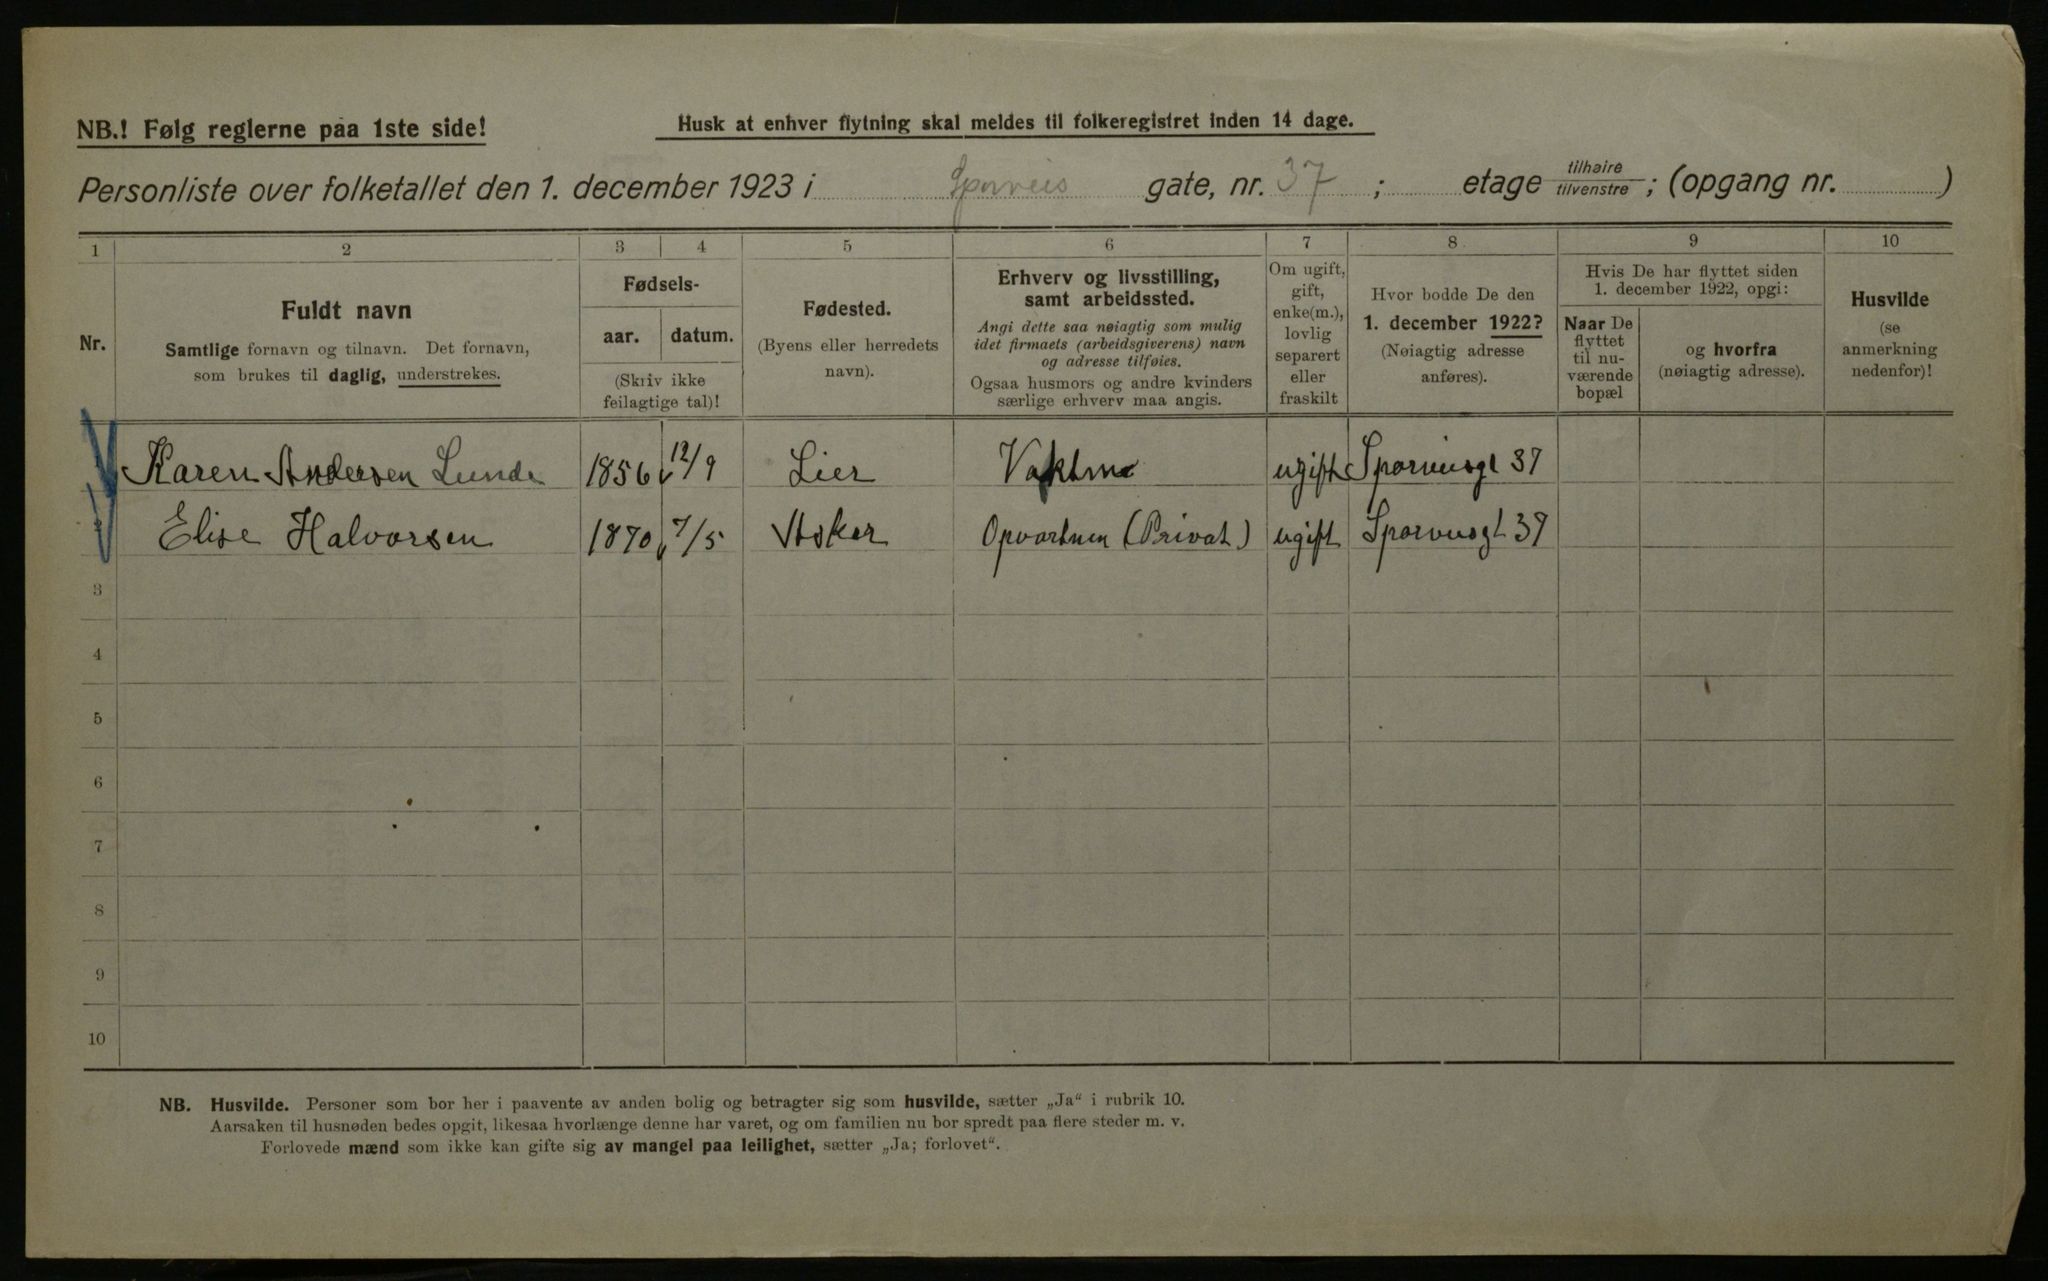 NB.! Følg reglerne paa 1ste side!
Husk at enhver flytning skal meldes til folkeregistret inden 14 dage.
Personliste over folketallet den 1. december 1923 i Sporveis gate, nr. 37 ; etage tilhøire tilvenstre ; (opgang nr. )
1 2 3 4 5 6 7 8 9 10
Nr.
Fuldt navn
Samtlige fornavn og tilnavn. Det fornavn,
som brukes til daglig, understrekes.
Fødsels-
aar. datum.
(Skriv ikke
feilagtige tal)!
Fødested.
(Byens eller herredets
navn).
Erhverv og livsstilling,
samt arbeidssted.
Angi dette saa nøiagtig som mulig
idet firmaets (arbeidsgiverens) navn
og adresse tilføies.
Ogsaa husmors og andre kvinders
særlige erhverv maa angis.
Om ugift,
gift,
enke(m.),
lovlig
separert
eller
fraskilt
Hvor bodde De den
1. december 1922?
(Nøiagtig adresse
anføres).
Hvis De har flyttet siden
1. december 1922, opgi:
Naar De
flyttet
til nu-
værende
bopæl
og hvorfra
(nøiagtig adresse).
Husvilde
(se
anmerkning
nedenfor)!
Karen Andersen Lunde 1856 12/9 Lier ugift Sporveisgt 37
2 Elise Halvorsen 1870 7/5 Asker Opvartnen (Privat) ugift Sporveisgt 37
3
4
5
6
7
8
9
10
NB. Husvilde. Personer som bor her i paavente av anden bolig og betragter sig som husvilde, sætter „Ja“ i rubrik 10.
Aarsaken til husnøden bedes opgit, likesaa hvorlænge denne har varet, og om familien nu bor spredt paa flere steder m. v.
Forlovede mænd som ikke kan gifte sig av mangel paa leilighet, sætter „Ja; forlovet“.